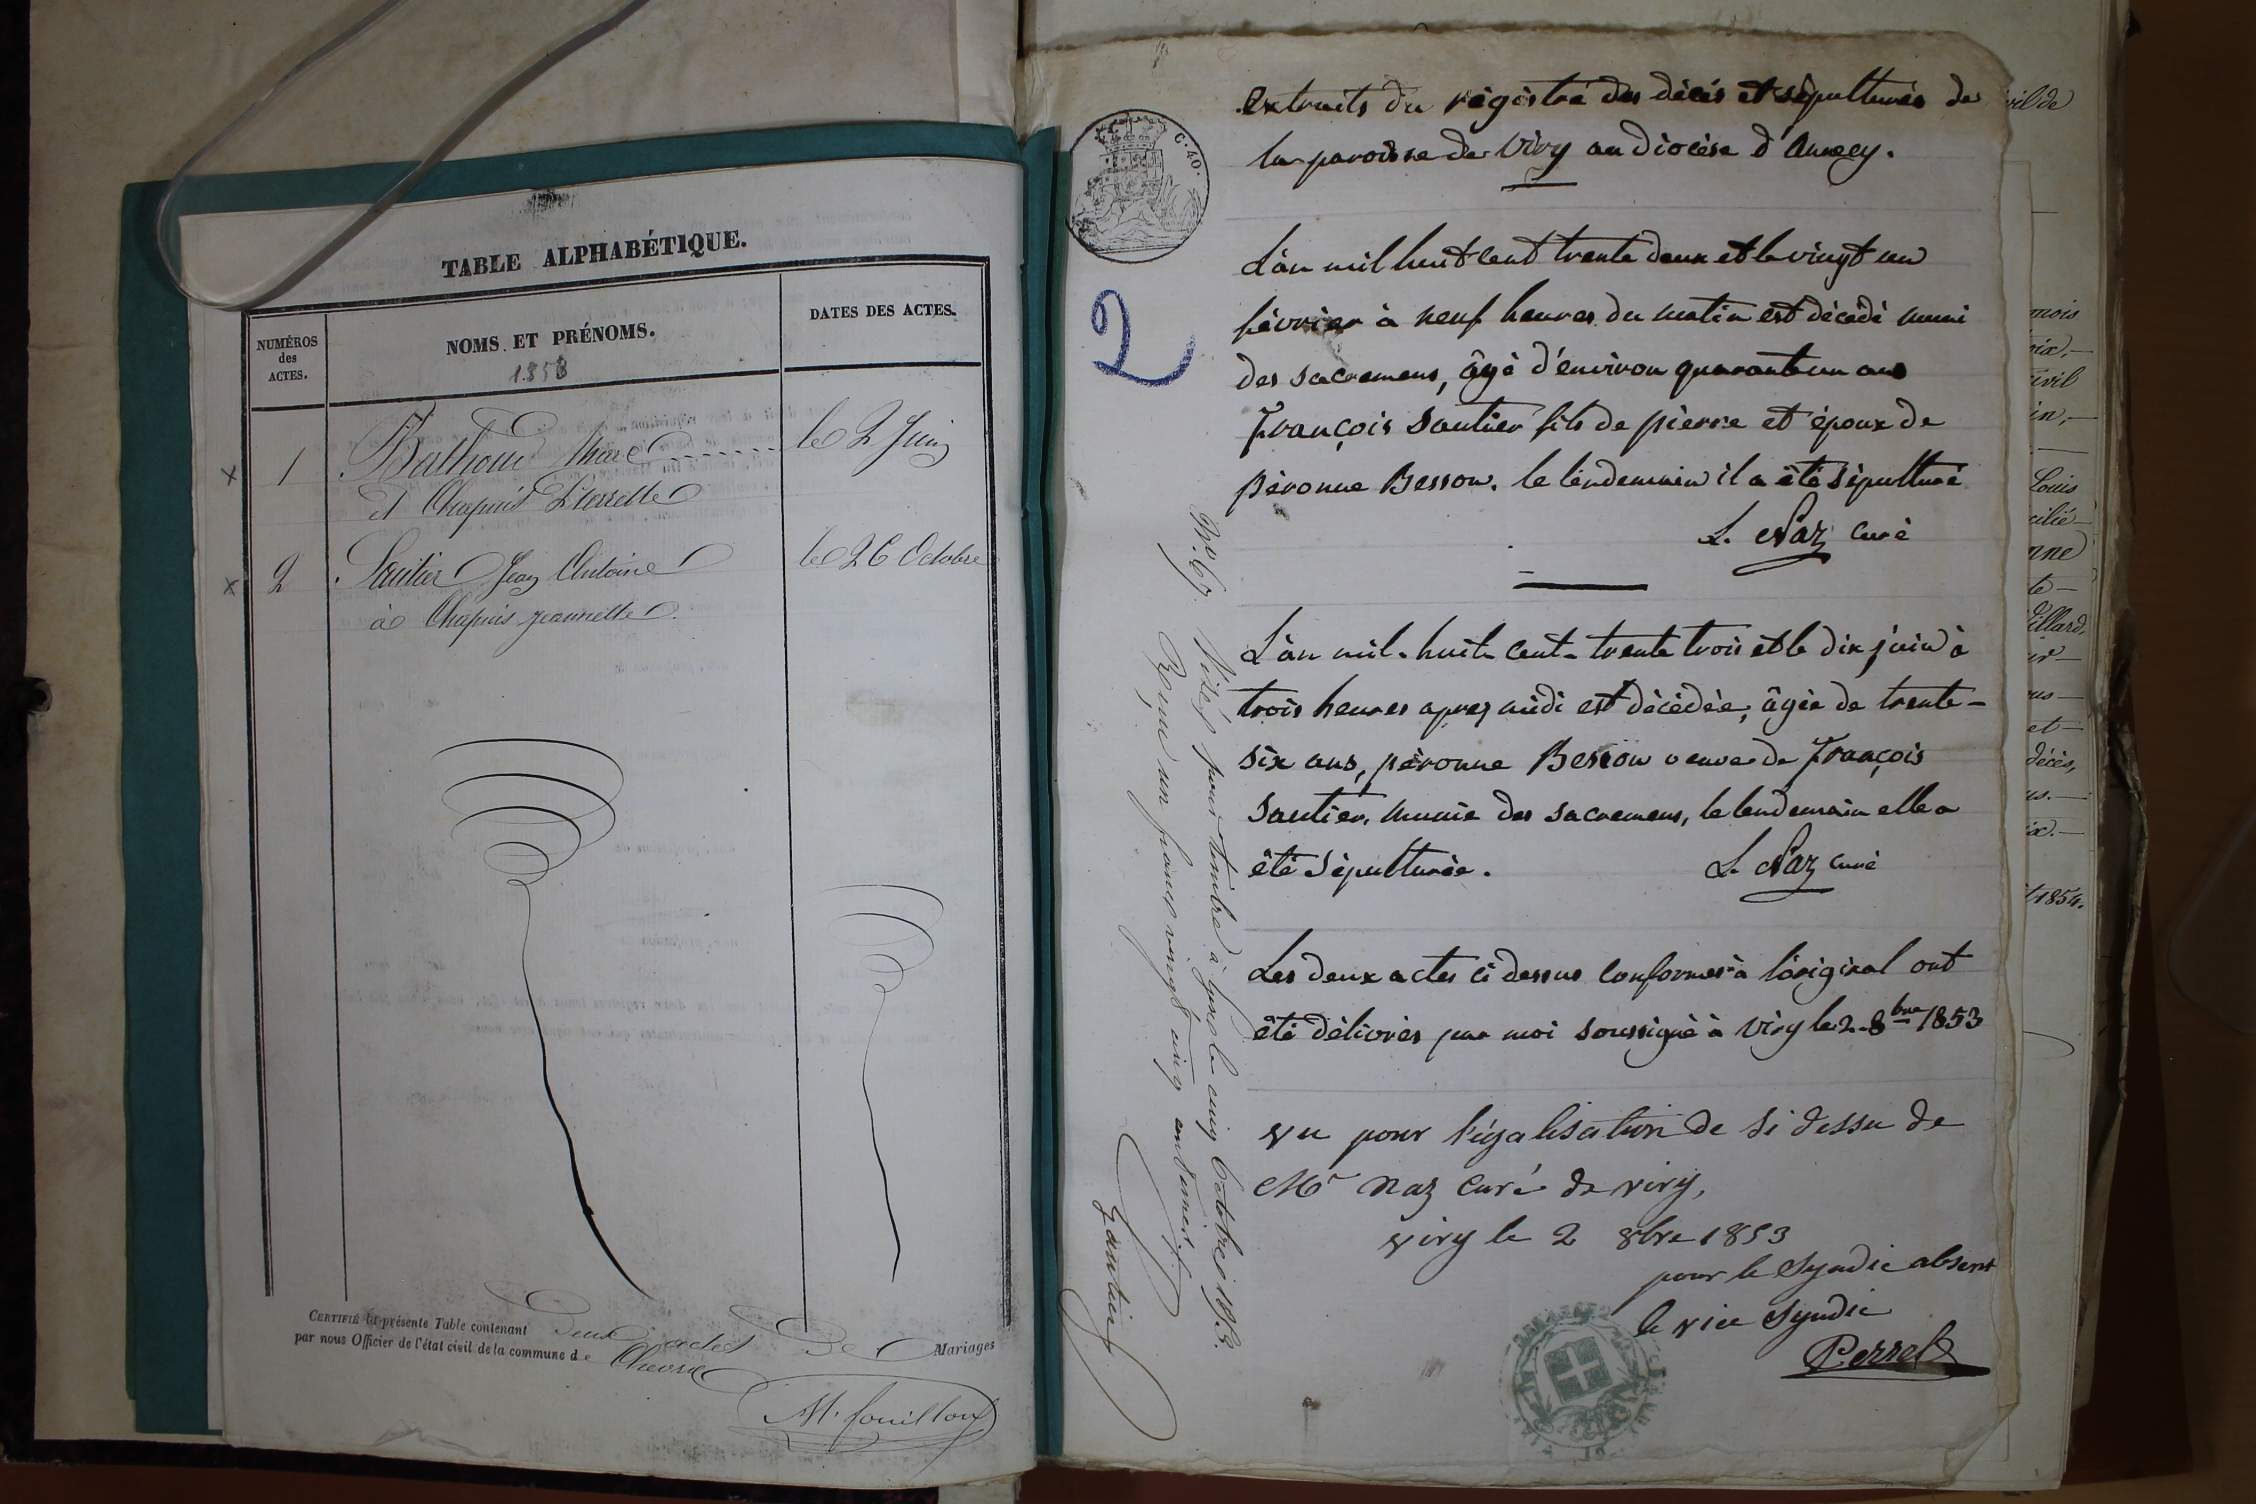 TABLE ALPHABÉTIQUE.
NUMÉROS
des
ACTES.
NOMS ET PRÉNOMS.
1853
DATES DES ACTES.
x 1 Marc le 2 Juin
et Chapuis
x 2 Sautier Jean Antoine le 26 Octobre
à Chapuis Jeannette
CERTIFIÉ la présente Table contenant Deux actes De Mariages
par nous Officier de l'état civil de la commune de Chevrier
M. fouilloux
C. 40.
2
extraits du régistre des décès et sépultures de
la paroisse de Viry au diocèse d'Annecy.
L'an mil huit cent trente deux et le vingt un
février à neuf heures du matin est décédé muni
des sacremens, âgé d'environ quarante un ans
François Sautier fils de pierre et époux de
péronne Besson. le lendemain il a été sépulturé
L. Naz curé
L'an mil huit cent trente trois et le dix juin à
trois heures après midi est décédée, âgée de trente-
six ans, péronne Besson veuve de François
Sautier, munie des sacremens, le lendemain elle a
été sépulturée.
L. Naz curé
Les deux actes ci dessus conformes à l'original ont
été délivrés par moi soussigné à Viry le 2 8bre 1853
Vu pour légalisation de si dessu de
Mr Naz Curé de viry,
viry le 2 8bre 1853
pour le Syndic absent
le vice Syndic
Perret
Visé pour timbre à le cinq Octobre 1853.
Reçu un franc vingt cinq
vil de
mois
Louis
nne
Villard,
et
décès,
1854.